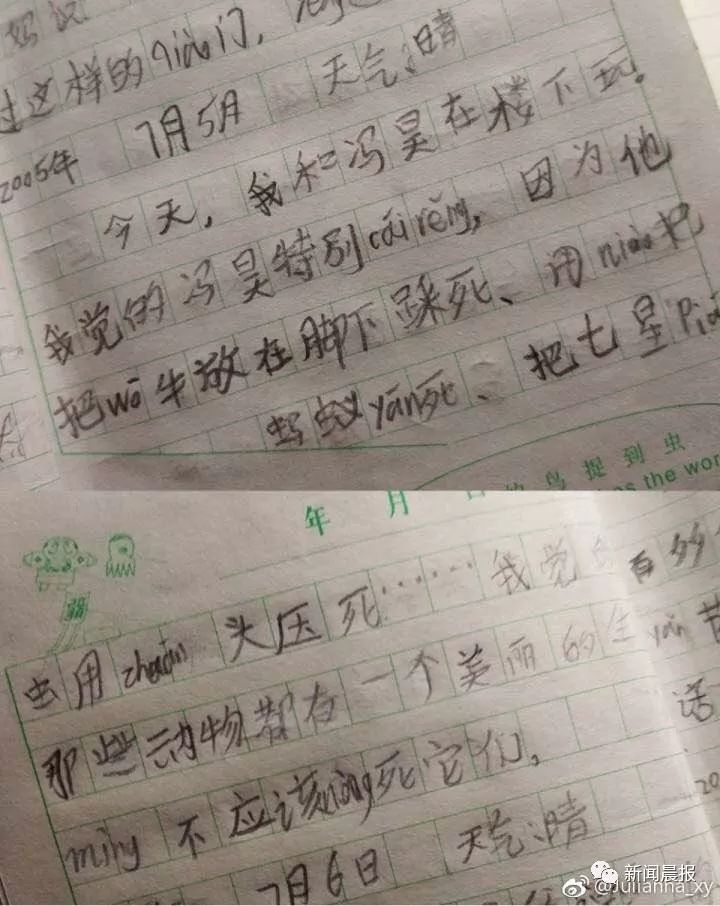 妈说
过这样的qiào门，
2005年 7月5月 天气:晴
今天，我和冯昊在楼下玩。
我觉的冯昊特别cái rěng，因为他
把wō牛放在脚下踩死、用niào把
蚂蚁yān死、把七星Piá
鸟捉到虫
s the wor
年 月 日
虫用zhuān头压死……我觉
那些动物都有一个美丽的生
ming 不应该nòng死它们。
7月6日 天气:晴
有多
yán 苦
话
20
新闻晨报
@Julianna_xy